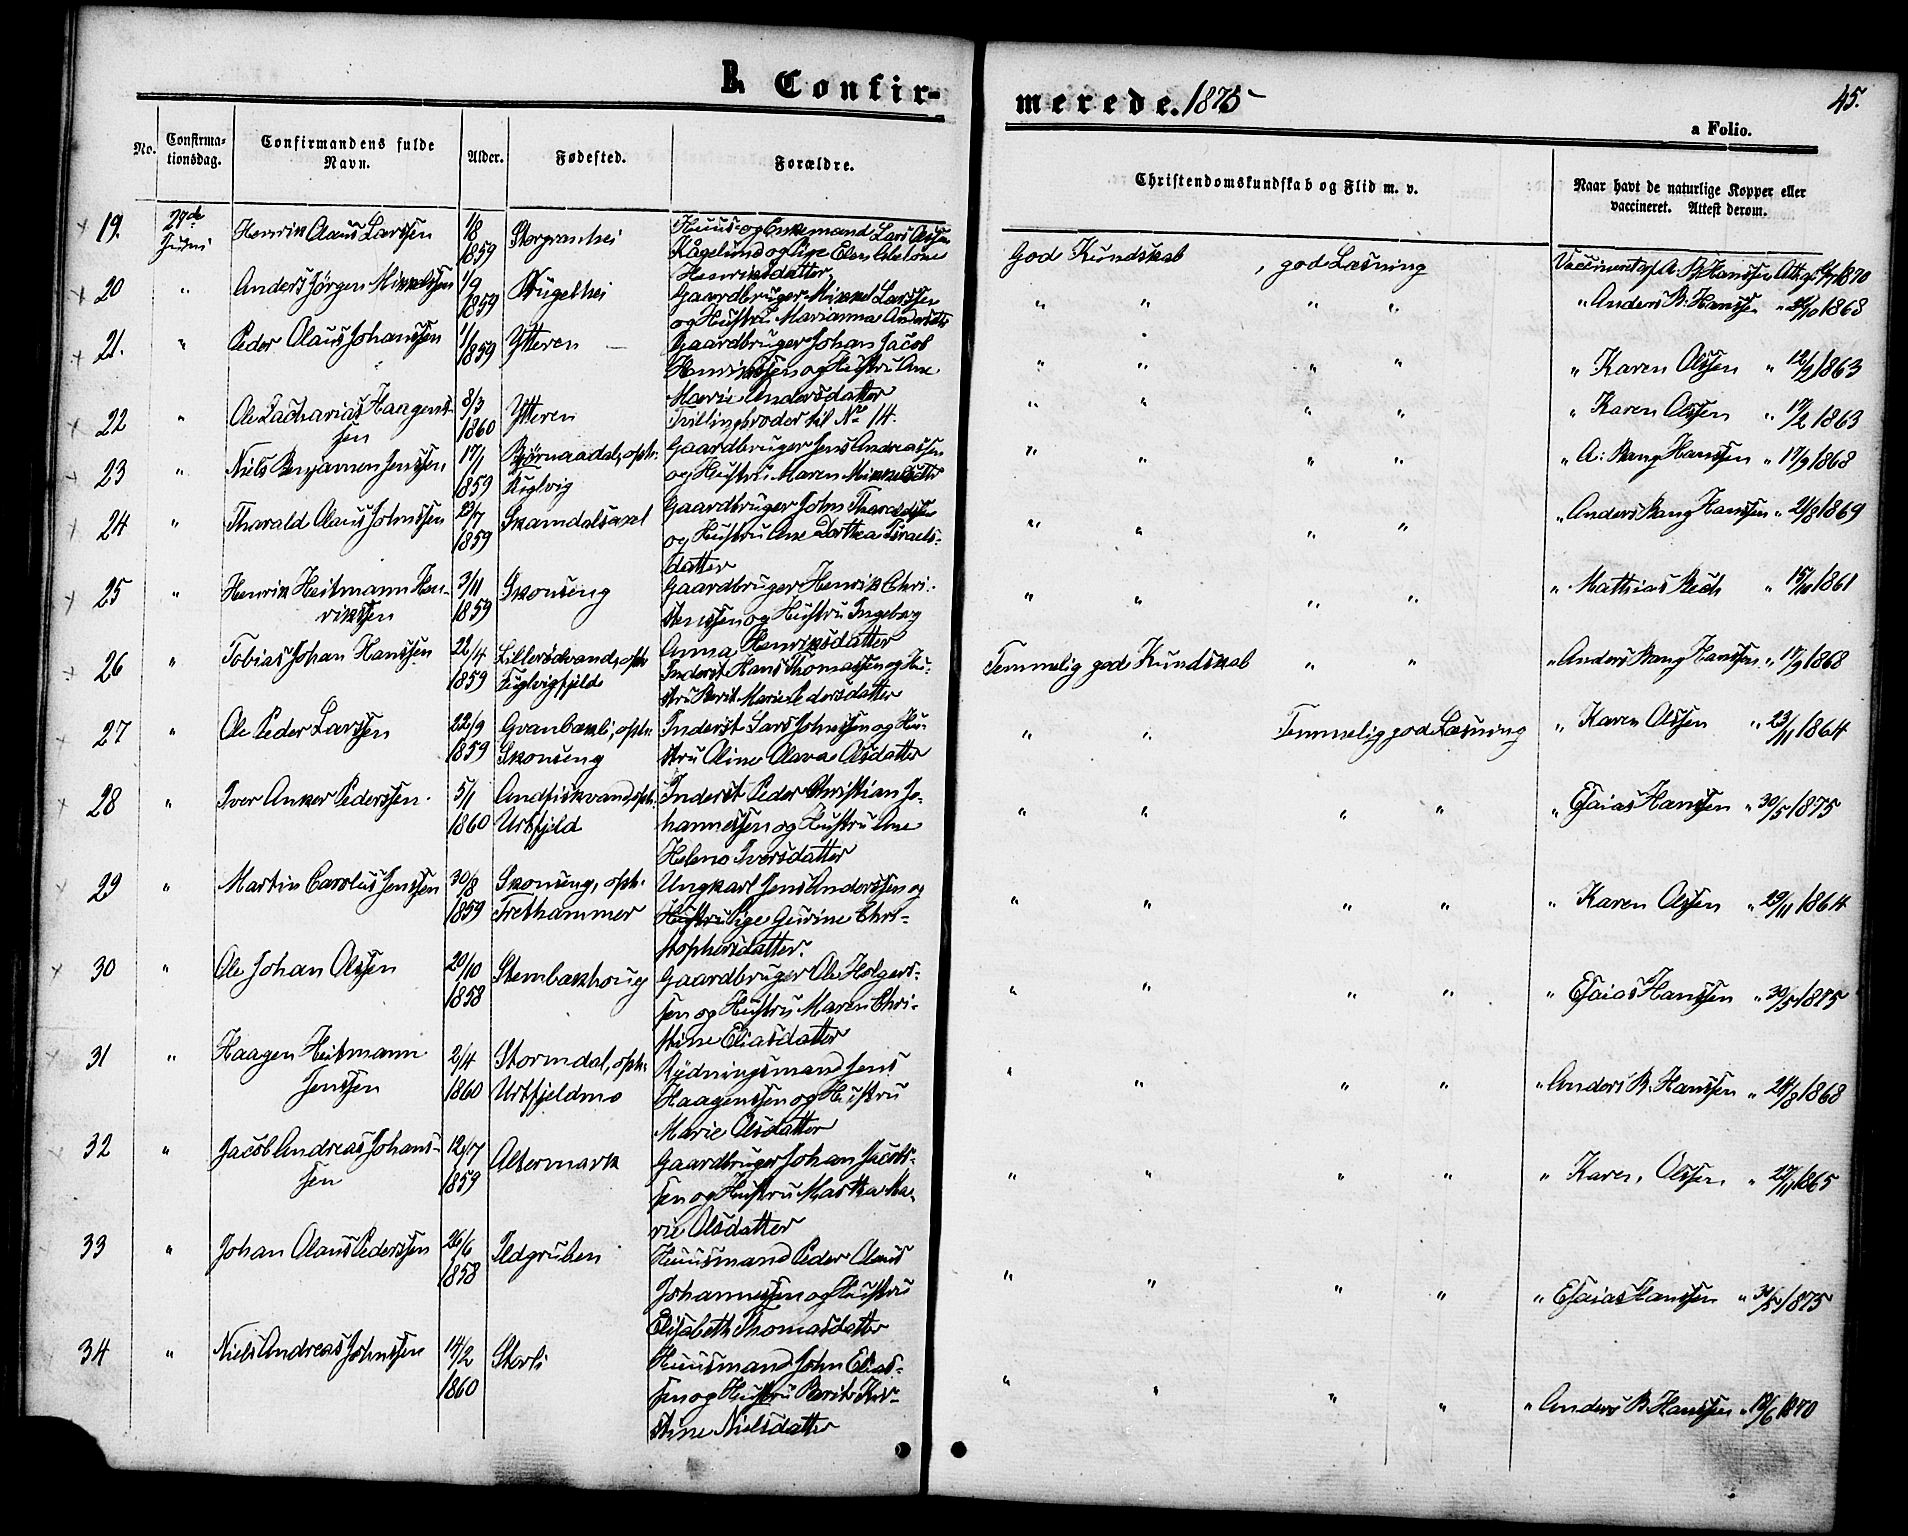 B. Confir-
merede. 1875
45.
a Folio.
No.
Confirma-
tionsdag.
Confirmandens fulde
Navn.
Alder.
Fødested.
Forældre.
Christendomskundskab og Flid m. v.
Naar havt de naturlige Kopper eller
vaccineret. Attest derom.
19. 27de Juni Henrik Olaus Larssen 1/8 1859 Storgranhei
Huus- og Enkemand Lars Olssen
Kågelund og Pige Elen Adelone
Henriksdatter
God Kundskab , god Læsning
Vaccineret af A. B. Hanssen Att. 1870
20 " Anders Jørgen Mikkelssen 1/9 1859 Brugelhei
Gaardbruger Mikkel Larssen
og Hustru Marianna Andersdtr
" " " " " Anders B. Hanssen " 1868
21. " Peder Olaus Johanssen 1/1 1859 Ytteren
Gaardbruger Johan Jacob
Henrikssen og Hustru Ane
Marie Andersdatter
" " " " " Karen Olssen " 12/2 1863
22 " Ole Zacharias Haagens-
sen 8/3 1860 Ytteren
Tvillingbroder til No 14.
" " " " " Karen Olssen " 17/2 1863
23 " Niels Benjamen Jenssen 17/1 1859 Bjørnaadal, opht.
Fuglvig
Gaardbruger Jens Andreassen
og Hustru Maren Mikkelsdatter
" " " " " A: Bang Hanssen " 17/9 1868
24 " Tharald Olaus Johnssen 23/7 1859 Skamdalsaxel
Gaardbruger John Tharaldssen
og Hustru Ane Dorthea Israels-
datter
" " " " " Anders Bang Hanssen " 24/8 1869
25 " Henrik Heitmann Hen-
rikssen 3/11 1859 Skonseng
Gaardbruger Henrik Chri-
stenssen og Hustru Ingeborg
Anna Henriksdatter
" " " " " Mathias Bech " 1861
26 " Tobias Johan Hanssen 22/4 1859 Lillerødvand, opht
Fuglvigfjeld
Inderst Hans Thomassen og Hu-
stru Berit Marie Pedersdatter
Temmelig god Kundskab " " " Anders Bang Hanssen " 17/9 1868
27 " Ole Peder Larssen 22/9 1859 Granbækli, opht:
Skonseng
Inderst Lars Johnssen og Hu-
stru Oline Olava Olsdatter
" " Temmelig god Læsning " Karen Olssen " 23/11 1864
28 " Iver Anker Pederssen 5/1 1860 Andfiskvand, opht.
Urtfjeld
Inderst Peder Christian Jo-
hannessen og Hustru Ane
Helena Iversdatter
" " " " " Esaias Hanssen " 30/5 1875
29 " Martin Carolus Jenssen 30/8 1859 Skonseng, opht.
Trethammer
Ungkarl Jens Anderssen og
Hustru Pige Gurine Chri-
stophersdatter.
" " " " " Karen Olssen " 29/11 1864
30 " Ole Johan Olssen 20/10 1858 Stenbækhoug
Gaardbruger Ole Holgers-
sen og Hustru Maren Chri-
stine Eliasdatter
" " " " " Esaias Hanssen " 30/5 1875
31 " Haagen Heitmann
Jenssen 2/4 1860 Stormdal, opht.
Urtfjeldmo
Rydningsmand Jens
Haagenssen og Hustru
Marie Olsdatter
" " " " " Anders B. Hanssen " 24/8 1868
32 " Jacob Andreas Johans-
sen 12/7 1859 Altermark
Gaardbruger Johan Jacobs-
sen og Hustru Martha Ma-
rie Olsdatter
" " " " " Karen Olssen " 1865
33 " Johan Olaus Pederssen 26/6 1858 Ildgruben
Huusmand Peder Olaus
Johannessen og Hustru
Elisabeth Thomasdatter
" " " " " Esaias Hanssen " 30/5 1875
34 " Niels Andreas Johnssen 14/2 1860 Storli
Huusmand John Elias-
sen og Hustru Berit Kir-
stine Nielsdatter
" " " " " Anders B. Hanssen " 12/6 1870